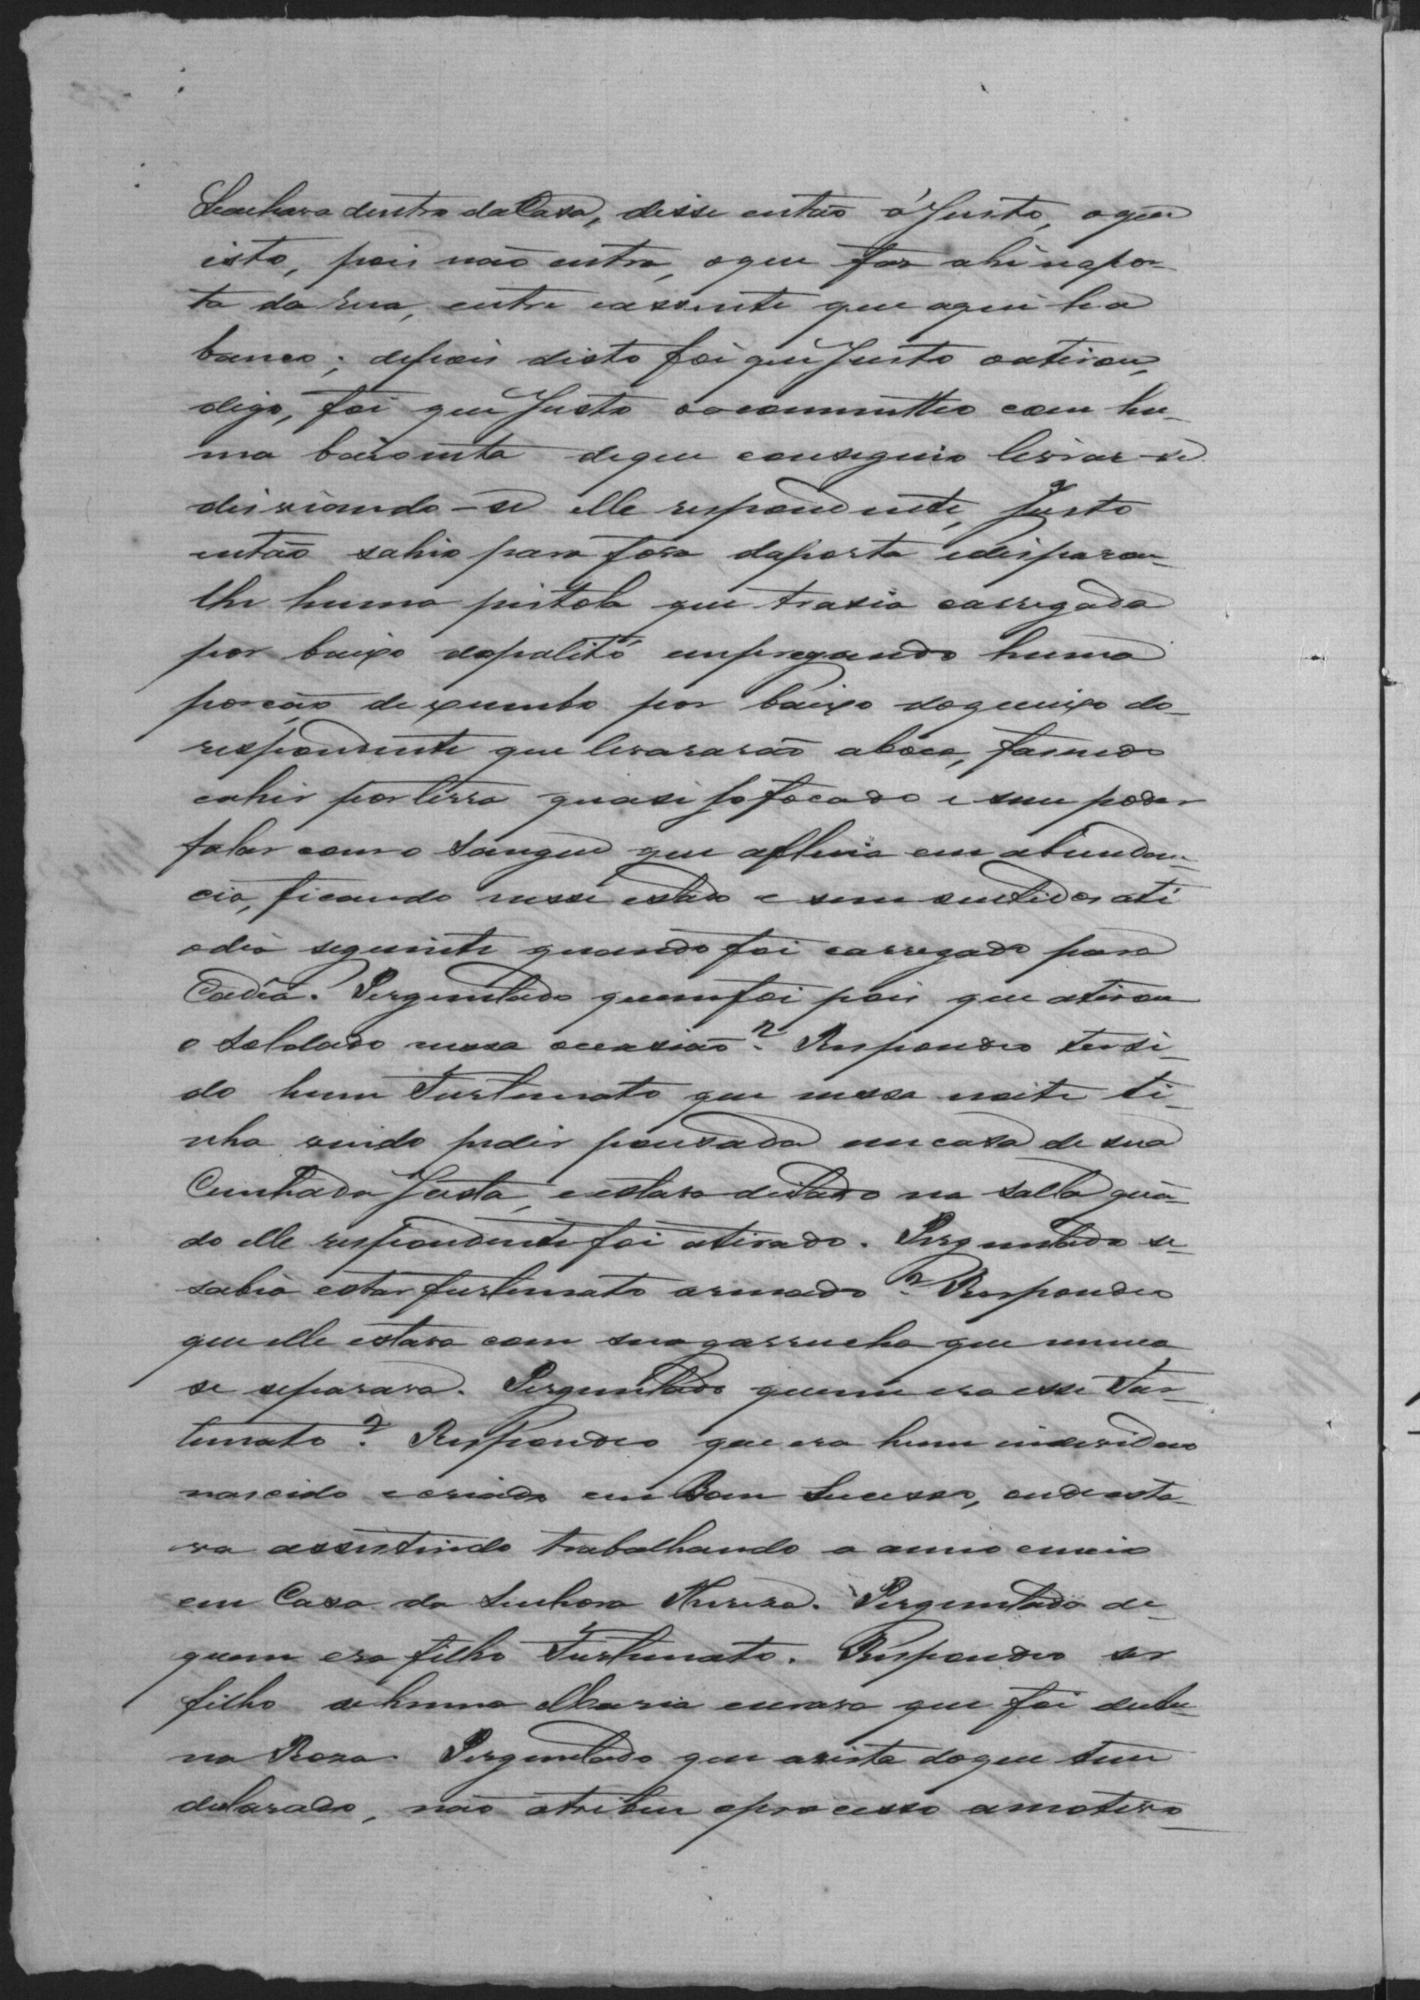 se achava dentro da Casa, disse então ó Justo, o que é
isto, pois não entra, o que faz ahi na por-
ta da rua, entre e assente que aqui ha
banco; depois disto foi que Justo o atirou,
digo, foi que Justo o acommetteo com hu-
ma baioneta de que conseguio livrar-se
desviando-se elle respondente, Justo
então sahio para fora da porta e disparou-
lhe huma pistola que trasia carregada
por baixo do palitó empregando huma
porção de xumbo por baixo do queixo do
respondente que levararão a boca, fasendo
cahir por terra quasi sofocado e sem poder
falar com o sangue que afluia em abundan-
cia, ficando nesse estado e sem sentidos até
o dia seguinte quando foi carregado para
Cadêa. Perguntado quem foi pois que atirou
o soldado nessa occasião? Respondeo ter si-
do hum Furtunato que nessa noite ti-
nha vindo pedir pousada em casa de sua
Cunhada Justa, e estava deitado na salla quan-
do elle respondente foi atirado. Perguntado se
sabia estar Furtunato armado? Respondeo
que elle estava com sua garrucha que nunca
se separava. Perguntado quem era esse Fur-
tunato? Respondeo que era hum individuo
nascido e criado em Bom Sucesso, onde esta-
va assistindo trabalhando a anno e meio
em Casa da Senhora Thereza. Perguntado de
quem era filho Furtunato. Respondeo ser
filho de huma Maria escrava que foi de
na Roza. Perguntado que avista do que tem
declarado, não atribue o processo a motivo